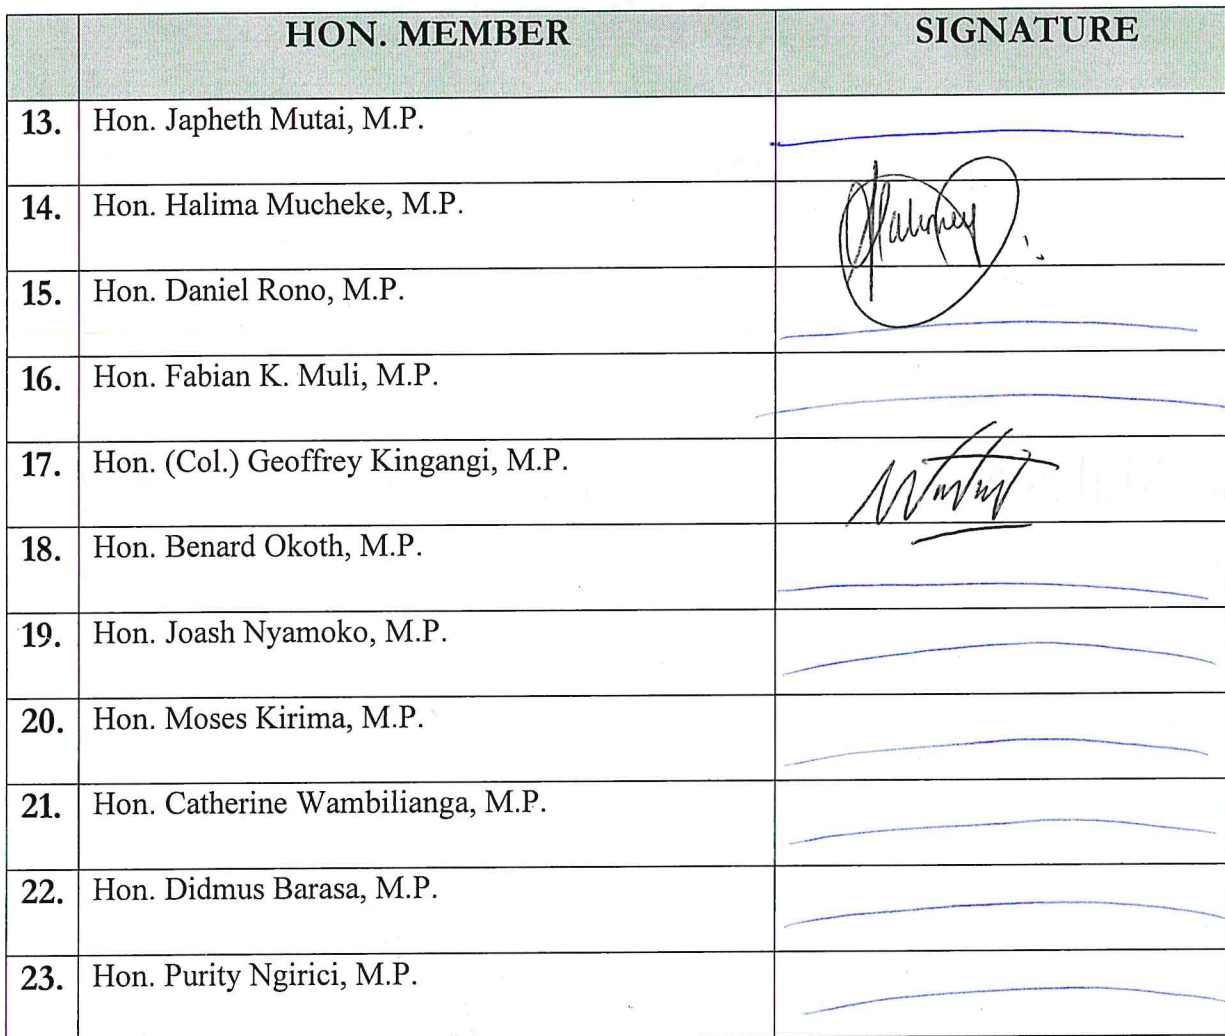 HON. MEMBER SIGNATURE
13. Hon. Japheth Mutai, M.P.
14. Hon. Halima Mucheke, M.P.
15. Hon. Daniel Rono, M.P.
16. Hon. Fabian K. Muli, M.P.
17. Hon. (Col.) Geoffrey Kingangi, M.P.
18. Hon. Benard Okoth, M.P.
19. Hon. Joash Nyamoko, M.P.
20. Hon. Moses Kirima, M.P.
21. Hon. Catherine Wambilianga, M.P.
22. Hon. Didmus Barasa, M.P.
23. Hon. Purity Ngirici, M.P.